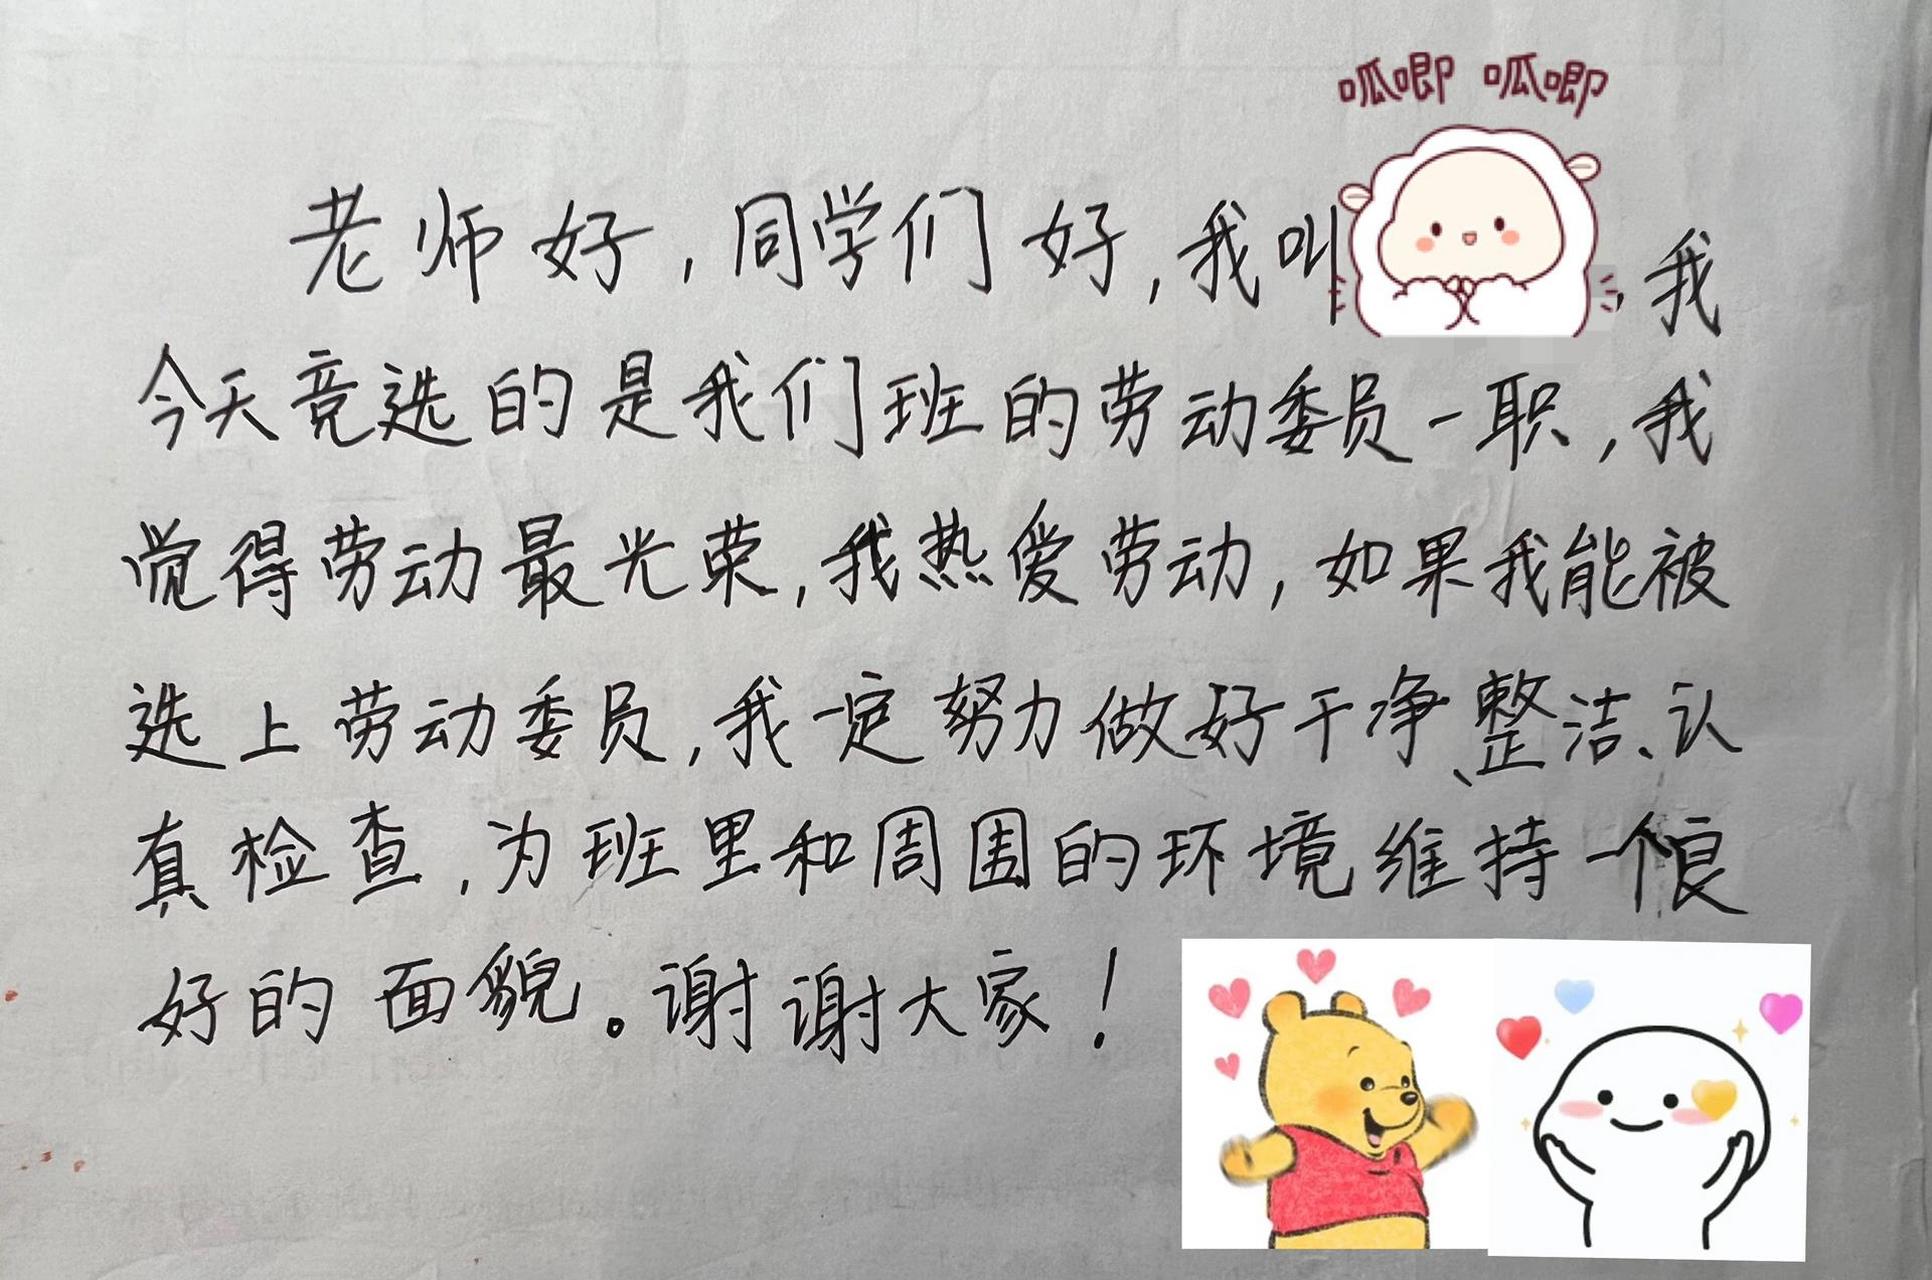 呱唧 呱唧
老师好，同学们好，我叫，我
今天竞选的是我们班的劳动委员一职，我
觉得劳动最光荣，我热爱劳动，如果我能被
选上劳动委员，我一定努力做好干净、整洁、认
真检查，为班里和周围的环境维持一个良
好的面貌。谢谢大家！